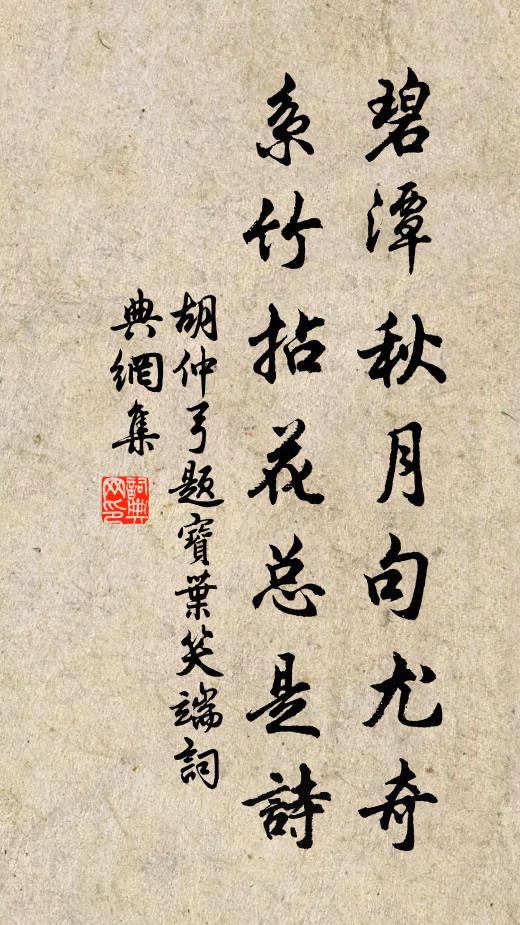 碧潭秋月句尤奇
系竹拈花总是詩
胡仲弓題寶葉笑端詞
典網集
詞典
网印